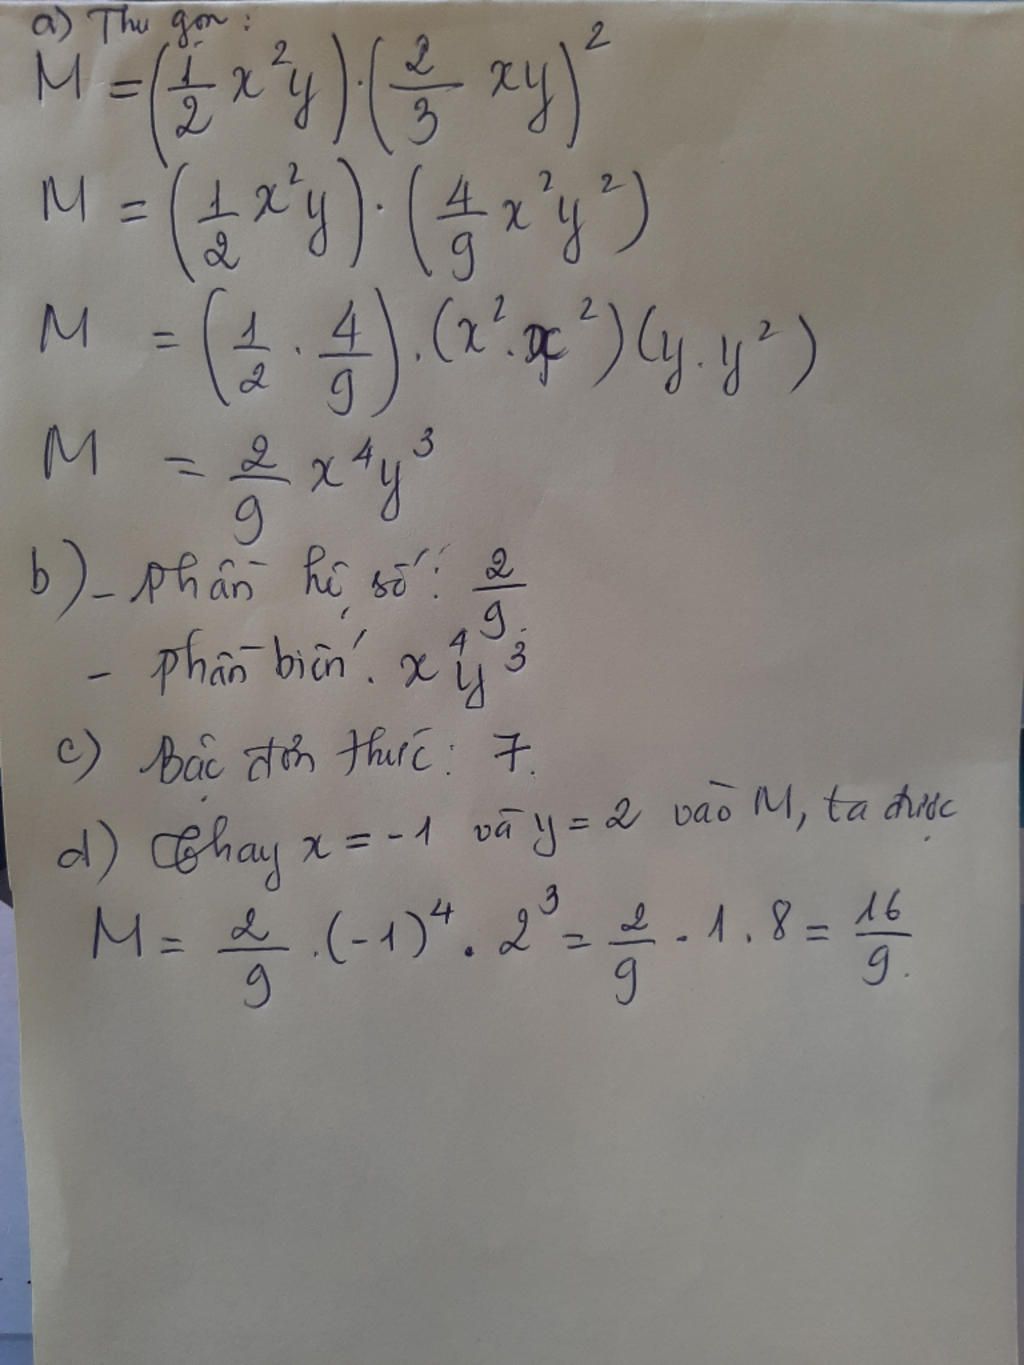 a) Thu gọn:
M = (1/2 x²y) · (2/3 xy)²
M = (1/2 x²y) · (4/9 x²y²)
M = (1/2 · 4/9) · (x² · x²)(y · y²)
M = 2/9 x⁴y³
b) - Phần hệ số: 2/9.
- Phần biến. x⁴y³
c) Bậc đơn thức: 7.
d) Thay x = -1 và y = 2 vào M, ta được
M = 2/9 · (-1)⁴ · 2³ = 2/9 · 1 · 8 = 16/9.